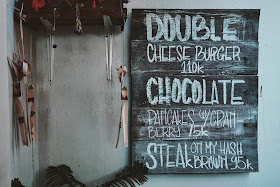 DOUBLE
CHEESE BURGER
110K
CHOCOLATE
PANCAKES W/CRAN
BERRY 75K
STEAK ON MY HASH
BROWN 95K